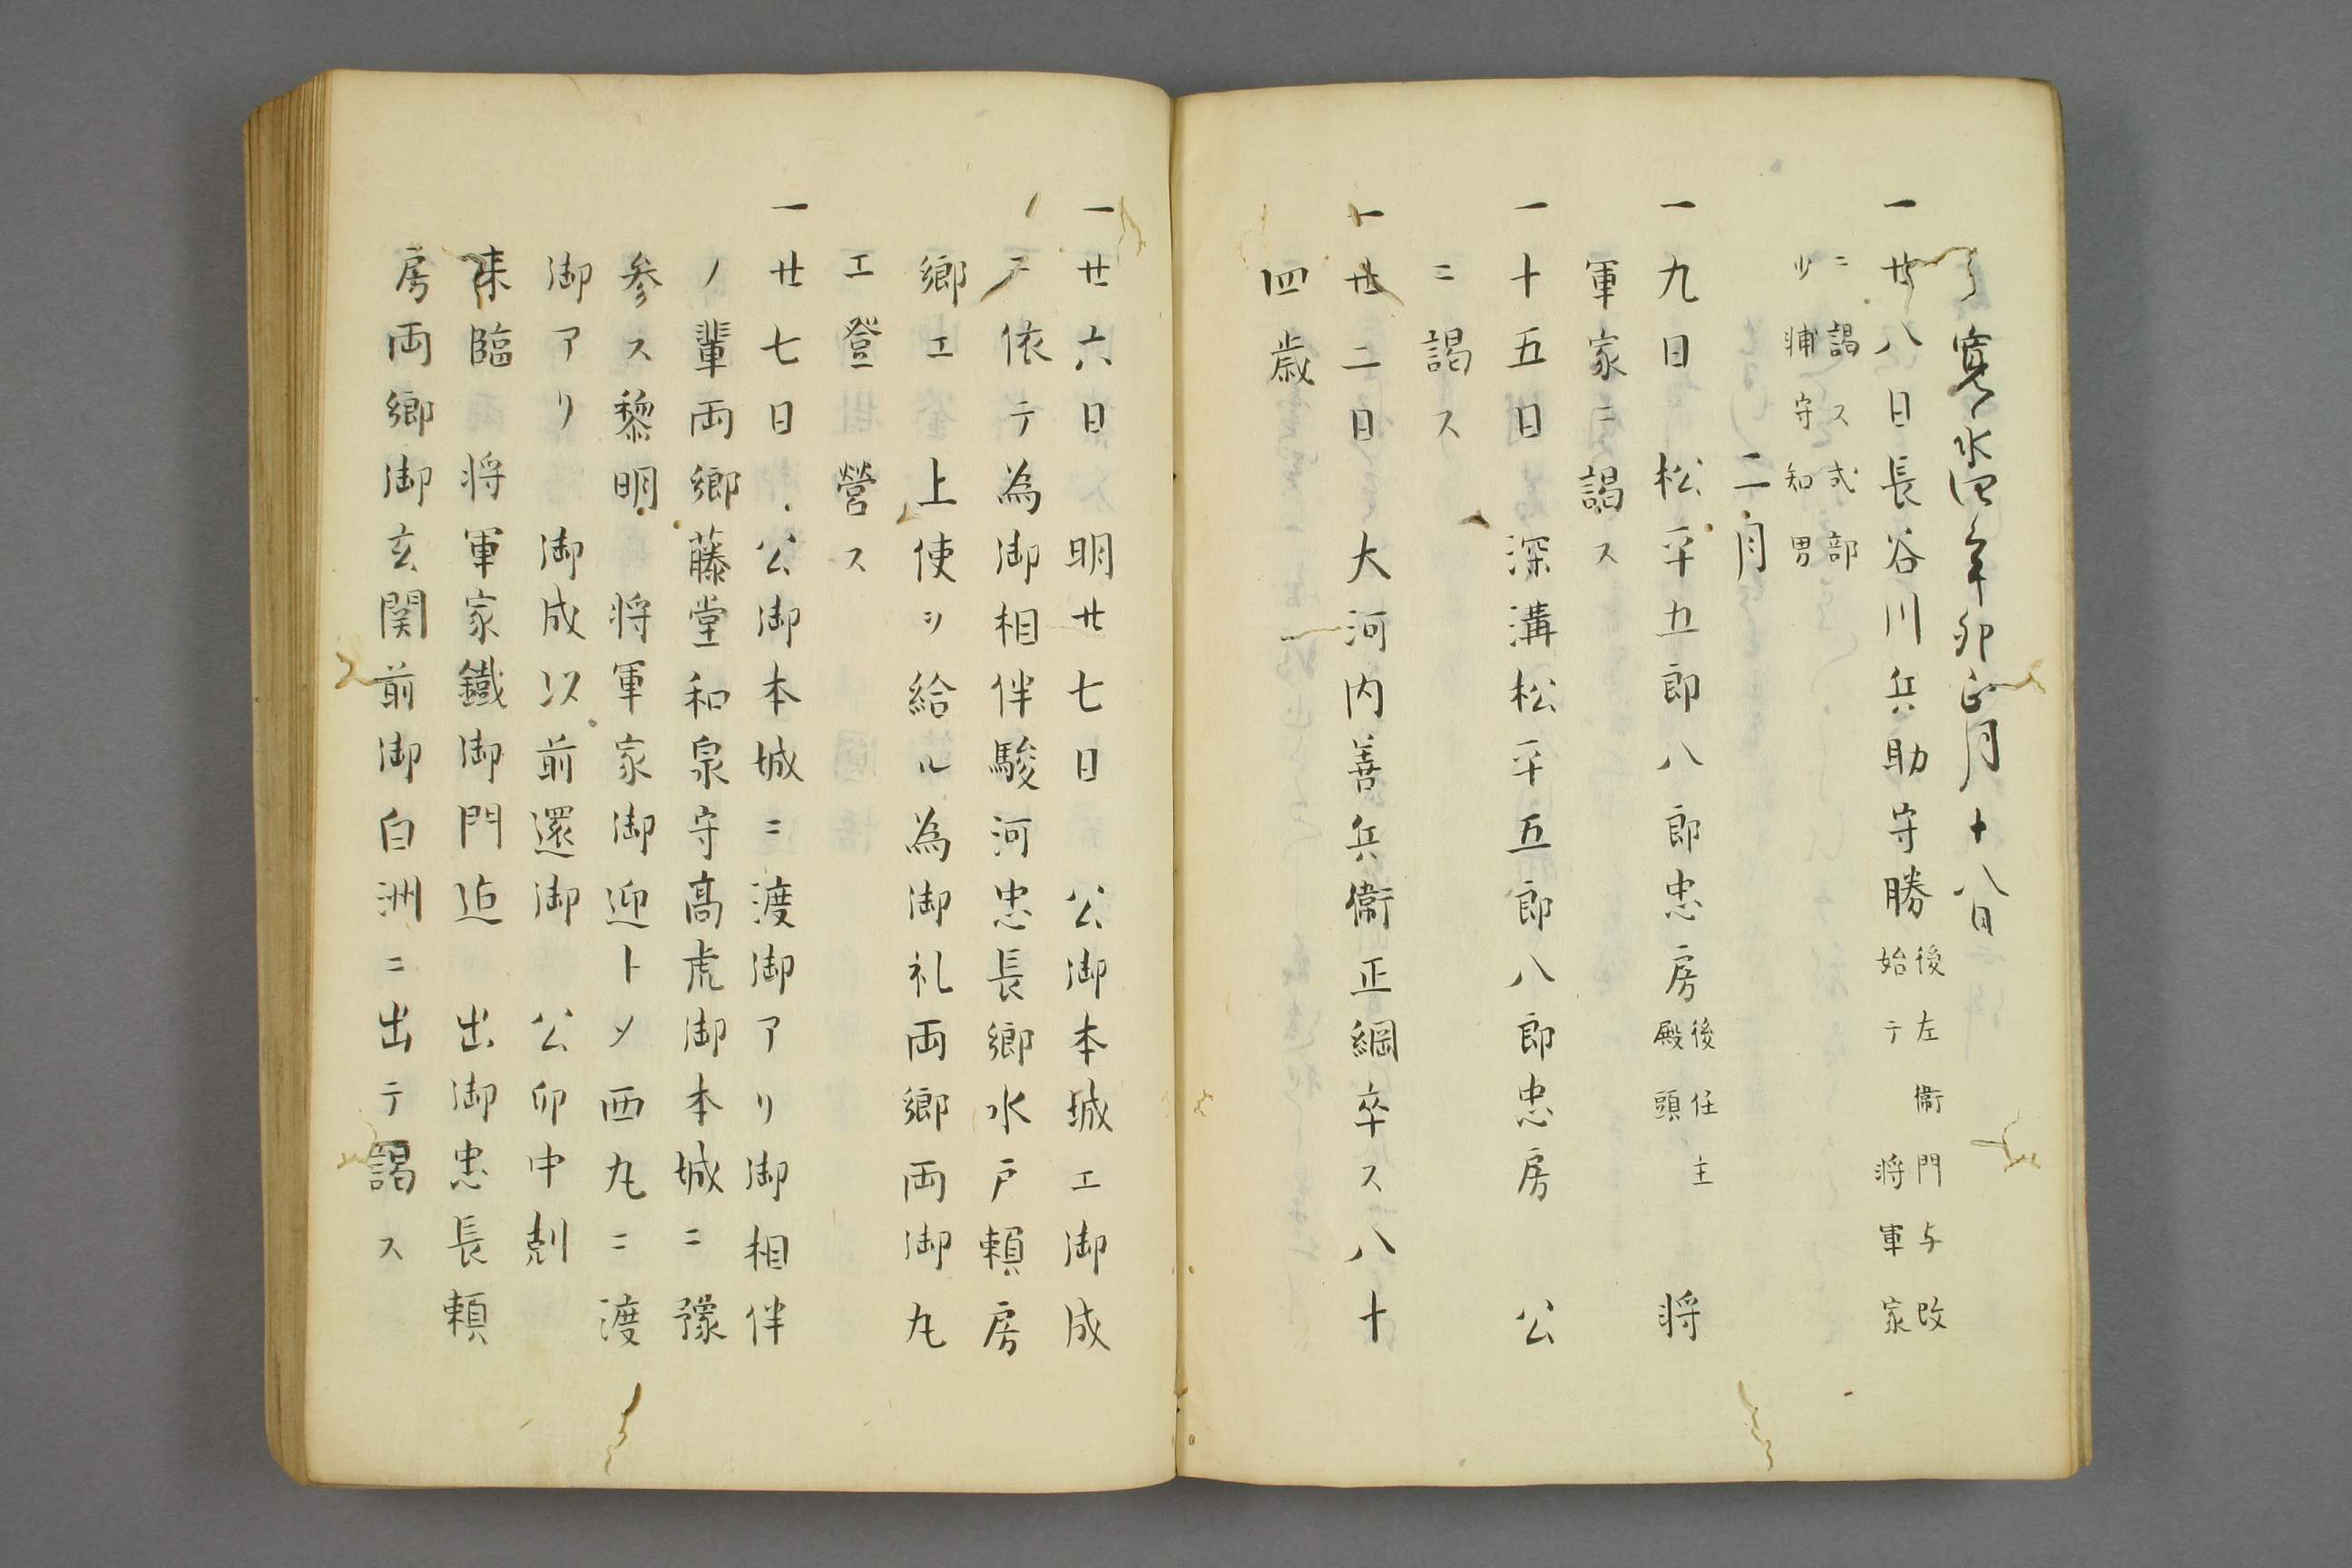 寛永四年卯正月十八日
一廿八日長谷川兵助守勝後左衛門与改
始テ将軍家
ニ謁ス式部
少輔守知男
二月
一九日松平五郎八郎忠房後任主
殿頭将
軍家ニ謁ス
一十五日深溝松平五郎八郎忠房公
ニ謁ス
一廿二日大河内善兵衛正綱卒ス八十
四歳
一廿六日明廿七日公御本城エ御成
ニ依テ為御相伴駿河忠長郷水戸頼房
郷エ上使ヲ給ル為御礼両郷両御丸
エ登営ス
一廿七日公御本城ニ渡御アリ御相伴
ノ輩両郷藤堂和泉守高虎御本城ニ豫
参ス黎明将軍家御迎トメ西丸ニ渡
御アリ御成以前還御公卯中剋
来臨将軍家鐵御門迠出御忠長頼
房両郷御玄関前御白洲ニ出テ謁ス